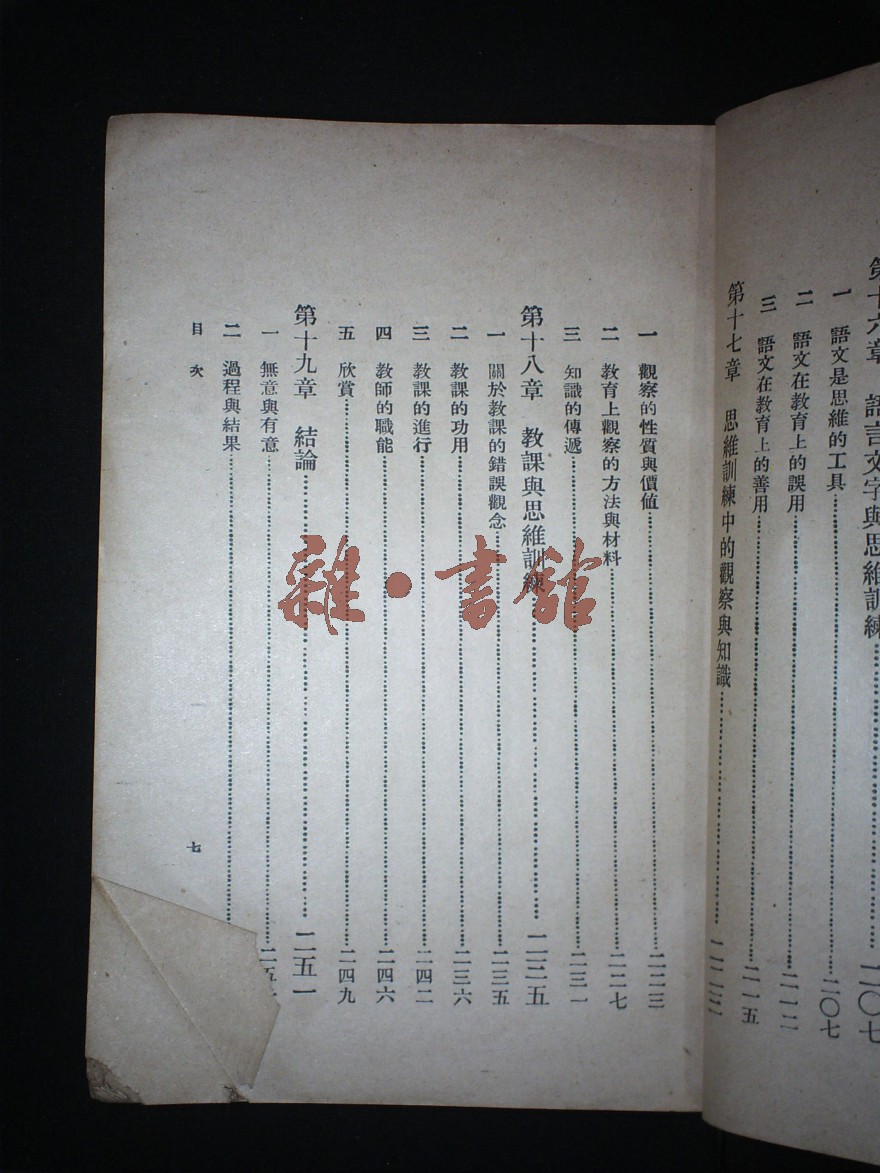 第十六章　語言文字與思維訓練……二〇七
一　語文是思維的工具……二〇七
二　語文在教育上的誤用……二一二
三　語文在教育上的善用……二一五
第十七章　思維訓練中的觀察與知識……二二三
一　觀察的性質與價值……二二三
二　教育上觀察的方法與材料……二二七
三　知識的傳遞……二三一
第十八章　教課與思維訓練……二二五
一　關於教課的錯誤觀念……二三五
二　教課的功用……二三六
三　教課的進行……二四二
四　教師的職能……二四六
五　欣賞……二四九
第十九章　結論……二五一
一　無意與有意……二五
二　過程與結果……
目次
七
雜·書館